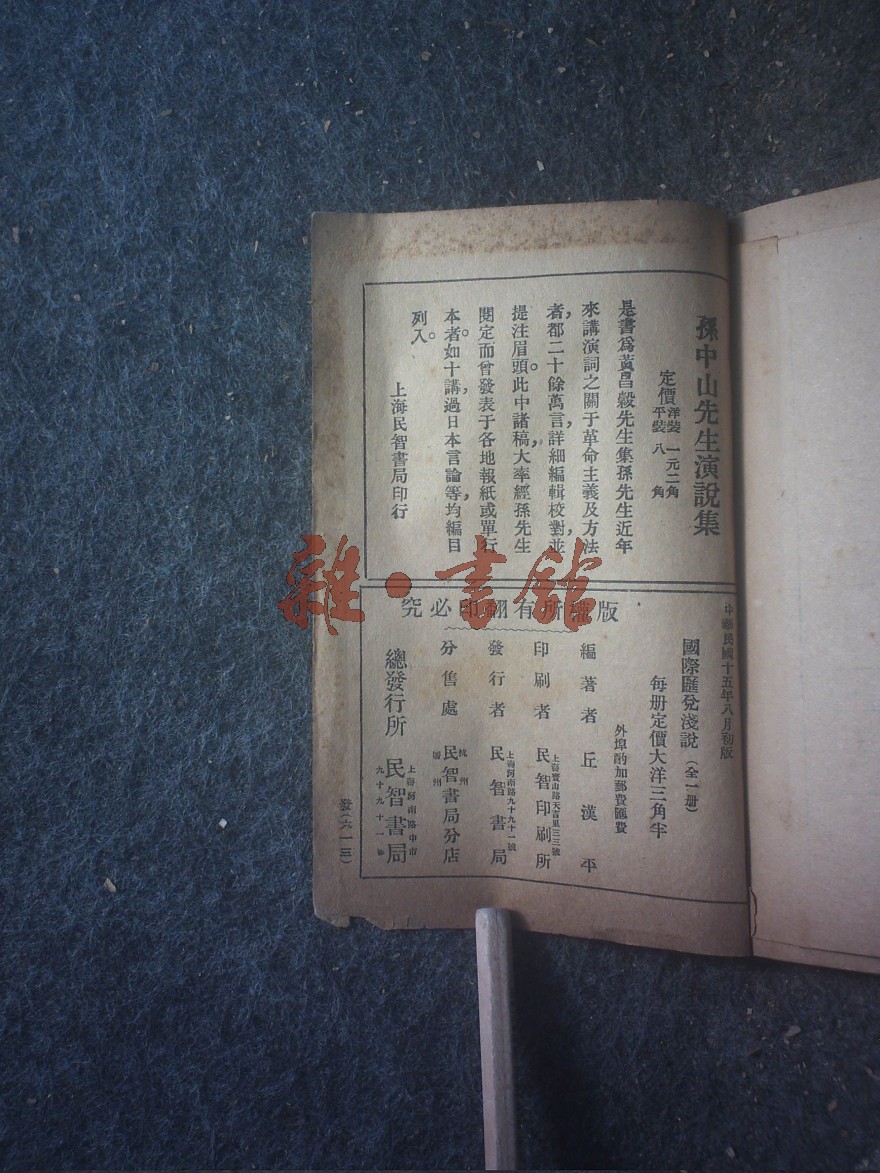 孫中山先生演說集
定價 洋裝 一元二角
平裝 八角
是書爲黃昌穀先生集孫先生近年
來講演詞之關于革命主義及方法
者，都二十餘萬言，詳細編輯校對，並
提注眉頭。此中諸稿，大率經孫先生
閱定而曾發表于各地報紙或單行
本者。如十講，過日本言論等，均編目
列入。
上海民智書局印行
中華民國十五年八月初版
國際匯兌淺說（全一册）
每册定價大洋三角半
外埠酌加郵費匯費
版權所有翻印必究
編著者 丘漢平
印刷者 上海寶山路天吉里三三號 民智印刷所
發行者 上海河南路九十九十一號 民智書局
分售處 杭州 民智書局分店
總發行所 上海河南路中市 九十九十一號 民智書局
發（六一三）
雜·書館